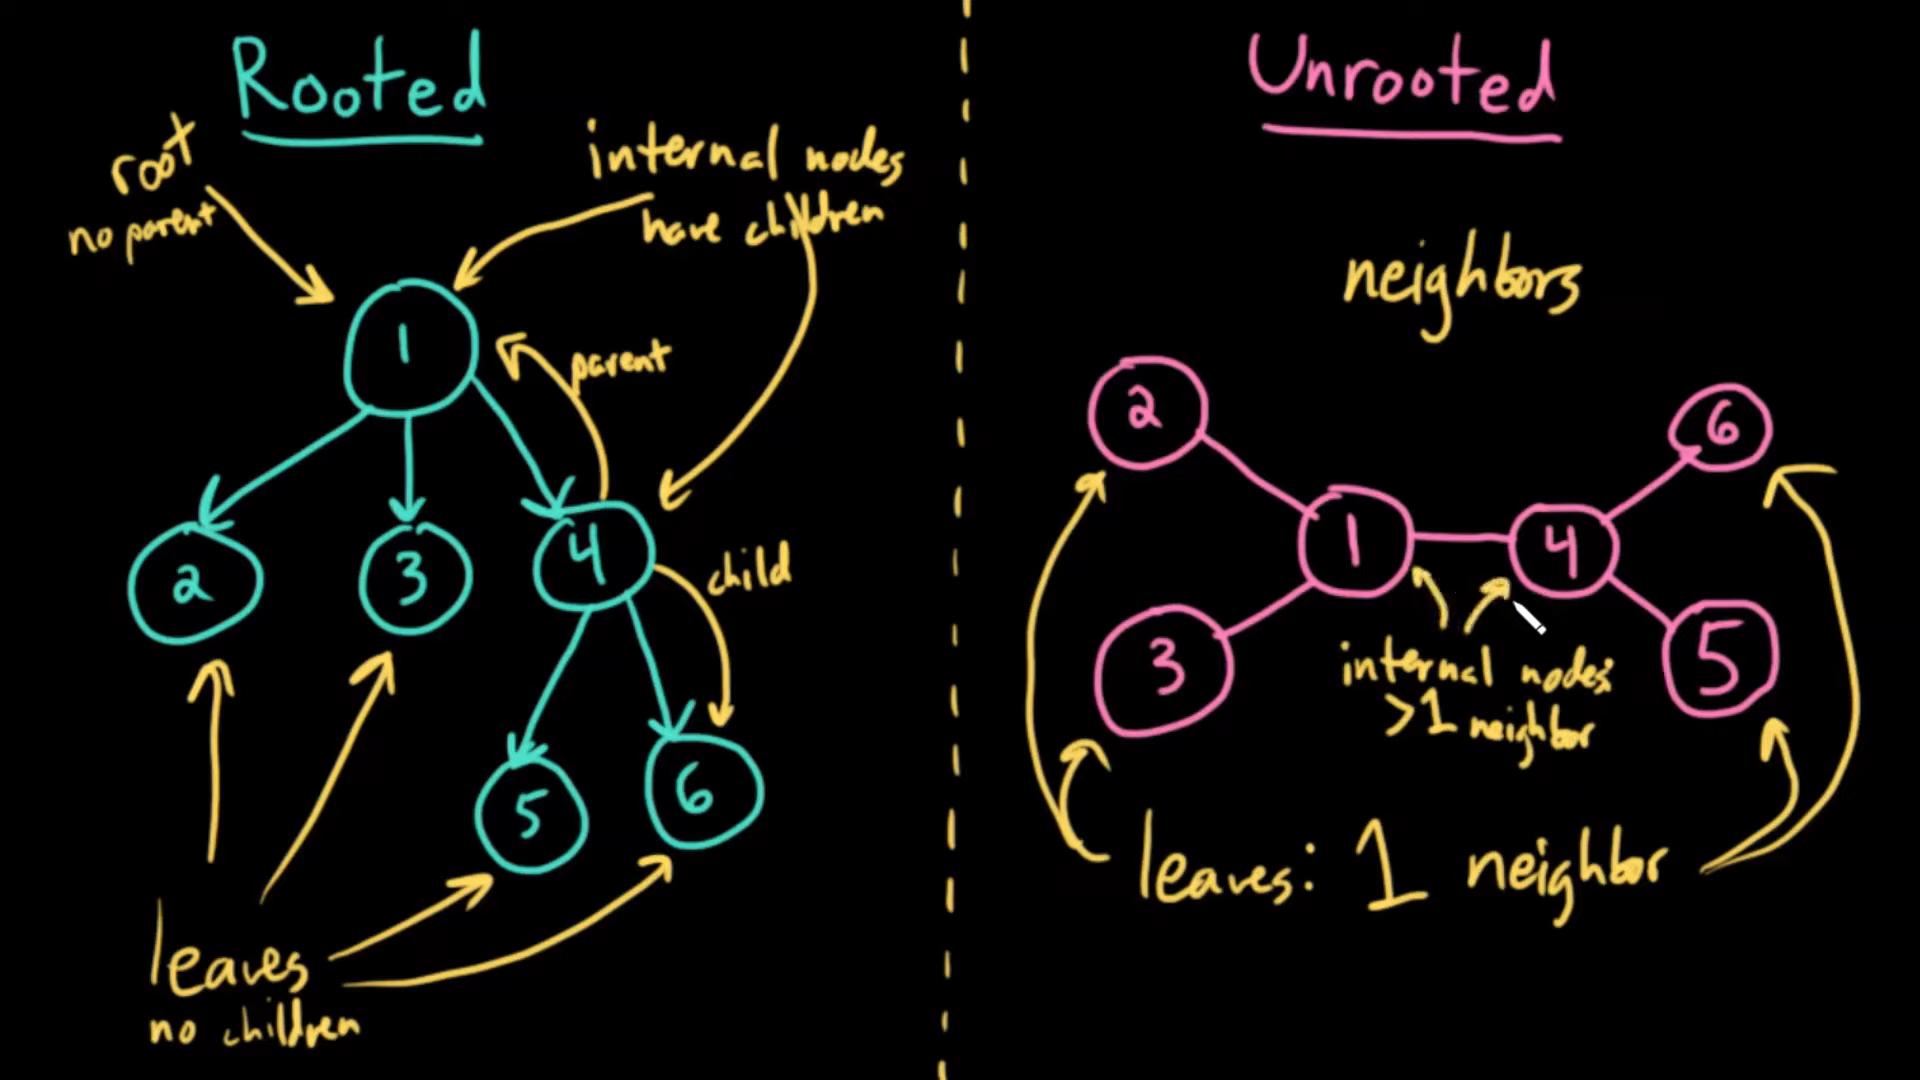 Rooted
root
no parent
internal nodes
have children
1
parent
2
3
4
child
5
6
leaves
no children
Unrooted
neighbors
2
6
1
4
3
5
internal nodes:
>1 neighbor
leaves: 1 neighbor